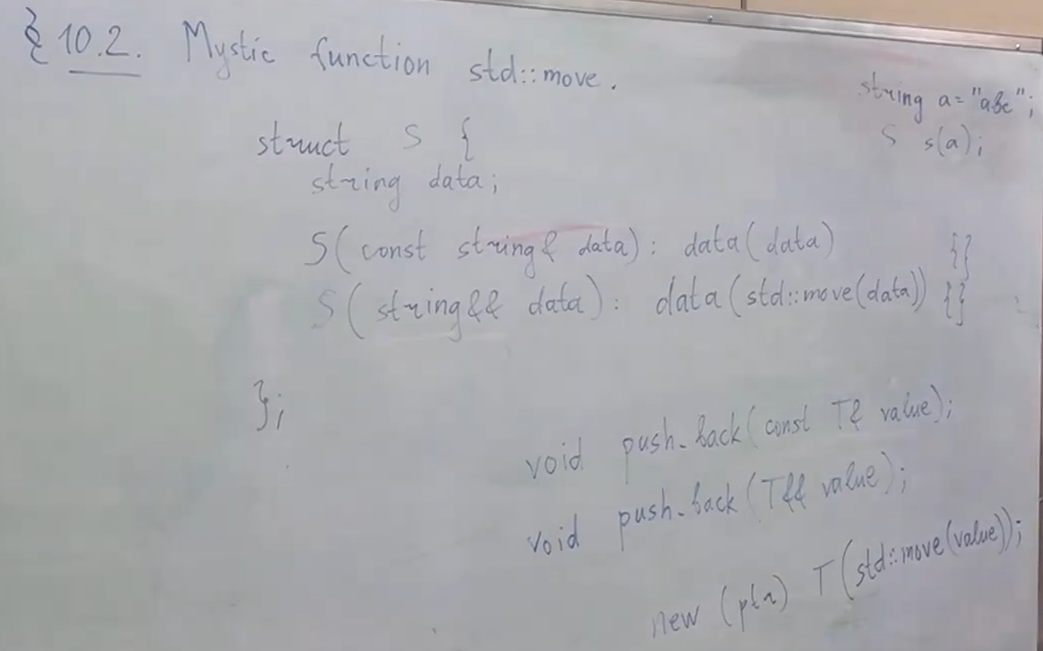 § 10.2. Mystic function std::move.
string a = "abc";
S s(a);
struct S {
string data;
S(const string& data): data(data) {}
S(string&& data): data(std::move(data)) {}
};
void push_back(const T& value);
void push_back(T&& value);
new (ptr) T(std::move(value));